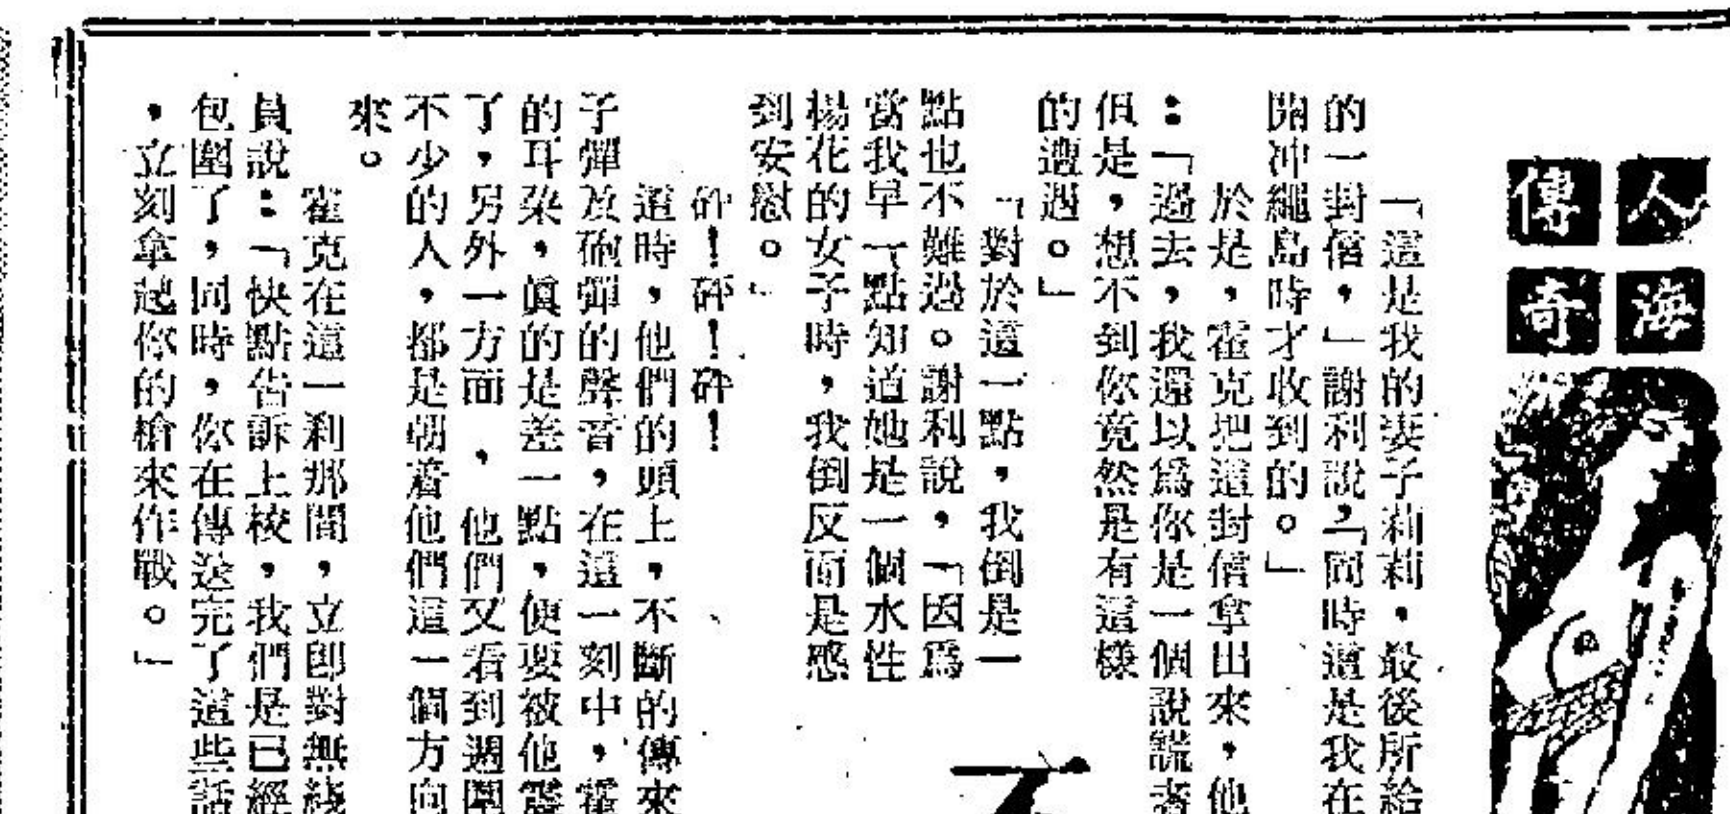 人海
傳奇
「這是我的妻子莉莉，最後所給
的一封信，」謝利說，「同時這是我在
開冲繩島時才收到的。」
於是，霍克把這封信拿出來，他
：「過去，我還以為你是一個說謊者
但是，想不到你竟然是有這樣
的遭遇。」
「對於這一點，我倒是一
點也不難過。謝利說，「因為
當我早一點知道她是一個水性
楊花的女子時，我倒反而是感
到安慰。」
砰！砰！砰！
這時，他們的頭上，不斷的傳來
子彈及砲彈的聲音，在這一刻中，霍
的耳朶，眞的是差一點，便要被他震
了，另外一方面，他們又看到週圍
不少的人，都是朝着他們這一個方向
來。
霍克在這一剎那間，立即對無綫
員說：「快點告訴上校，我們是已經
包圍了，同時，你在傳送完了這些話
，立刻拿起你的槍來作戰。」